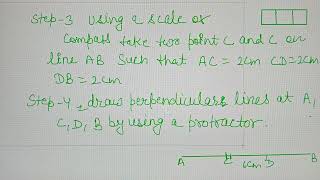 Step-3 Using a scale or
compass take two point C and C on
line AB Such that AC = 2cm CD=2cm
DB = 2cm
Step-4 draw perpendiculars lines at A,
C, D, B by using a protractor.
A C 6cm D B